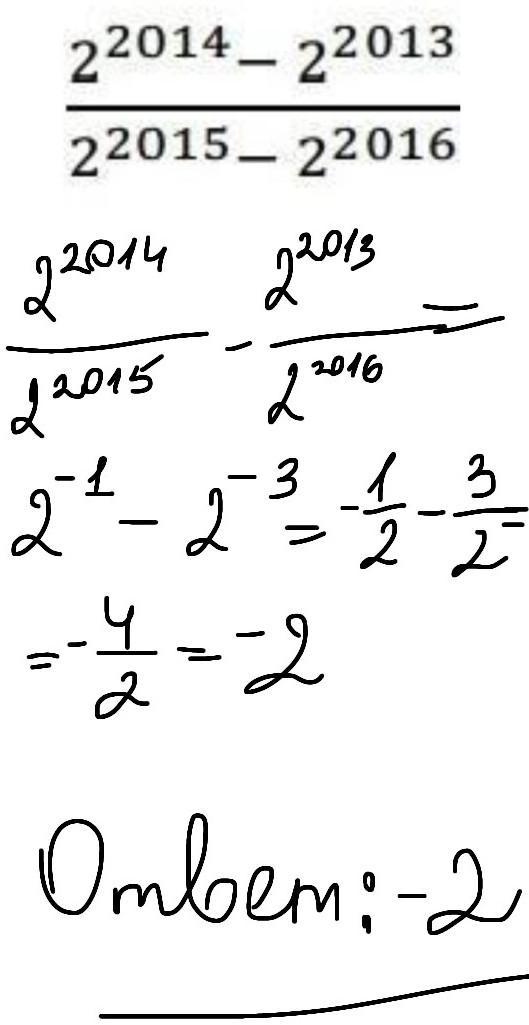 2^2014 − 2^2013
2^2015 − 2^2016
2^2014 - 2^2013 =
2^2015 2^2016
2^-1 - 2^-3 = -1/2 - 3/2 =
= -4/2 = -2
Ответ: -2